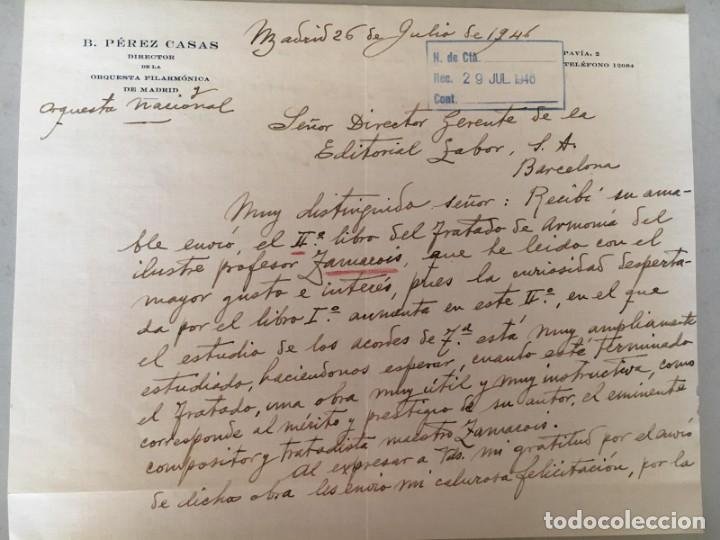 B. PÉREZ CASAS
DIRECTOR
DE LA
ORQUESTA FILARMÓNICA
DE MADRID y
orquesta nacional
Madrid 26 de Julio de 1946
PAVÍA, 2
TELÉFONO 12084
N. de Cta.
Rec. 29 JUL. 1946
Cont.
Señor Director Gerente de la
Editorial Labor, S. A.
Barcelona
Muy distinguido señor: Recibí su ama-
ble envió, el II.º libro del Tratado de Armonía del
ilustre profesor Zamacois, que he leido con el
mayor gusto e interés, pues la curiosidad desperta-
da por el libro I.º aumenta en este II.º, en el que
el estudio de los acordes de 7.ª está muy ampliamente
estudiado, haciendonos esperar, cuando esté terminado
el Tratado, una obra muy útil y muy instructiva, como
corresponde al mérito y prestigio de su autor, el eminente
compositor y tratadista maestro Zamacois.
Al expresar a Vds. mi gratitud por el envió
de dicha obra les envio mi calurosa felicitación, por la
todocoleccion.net